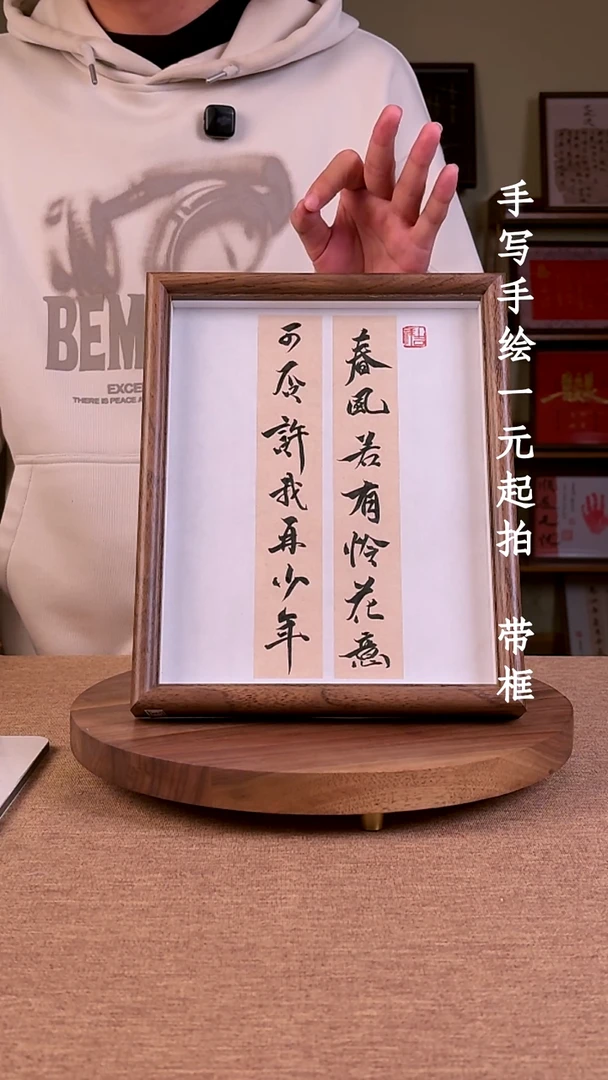 春风若有怜花意
可否許我再少年
手写手绘一元起拍 带框
BEM
EXCE
THERE IS PEACE A